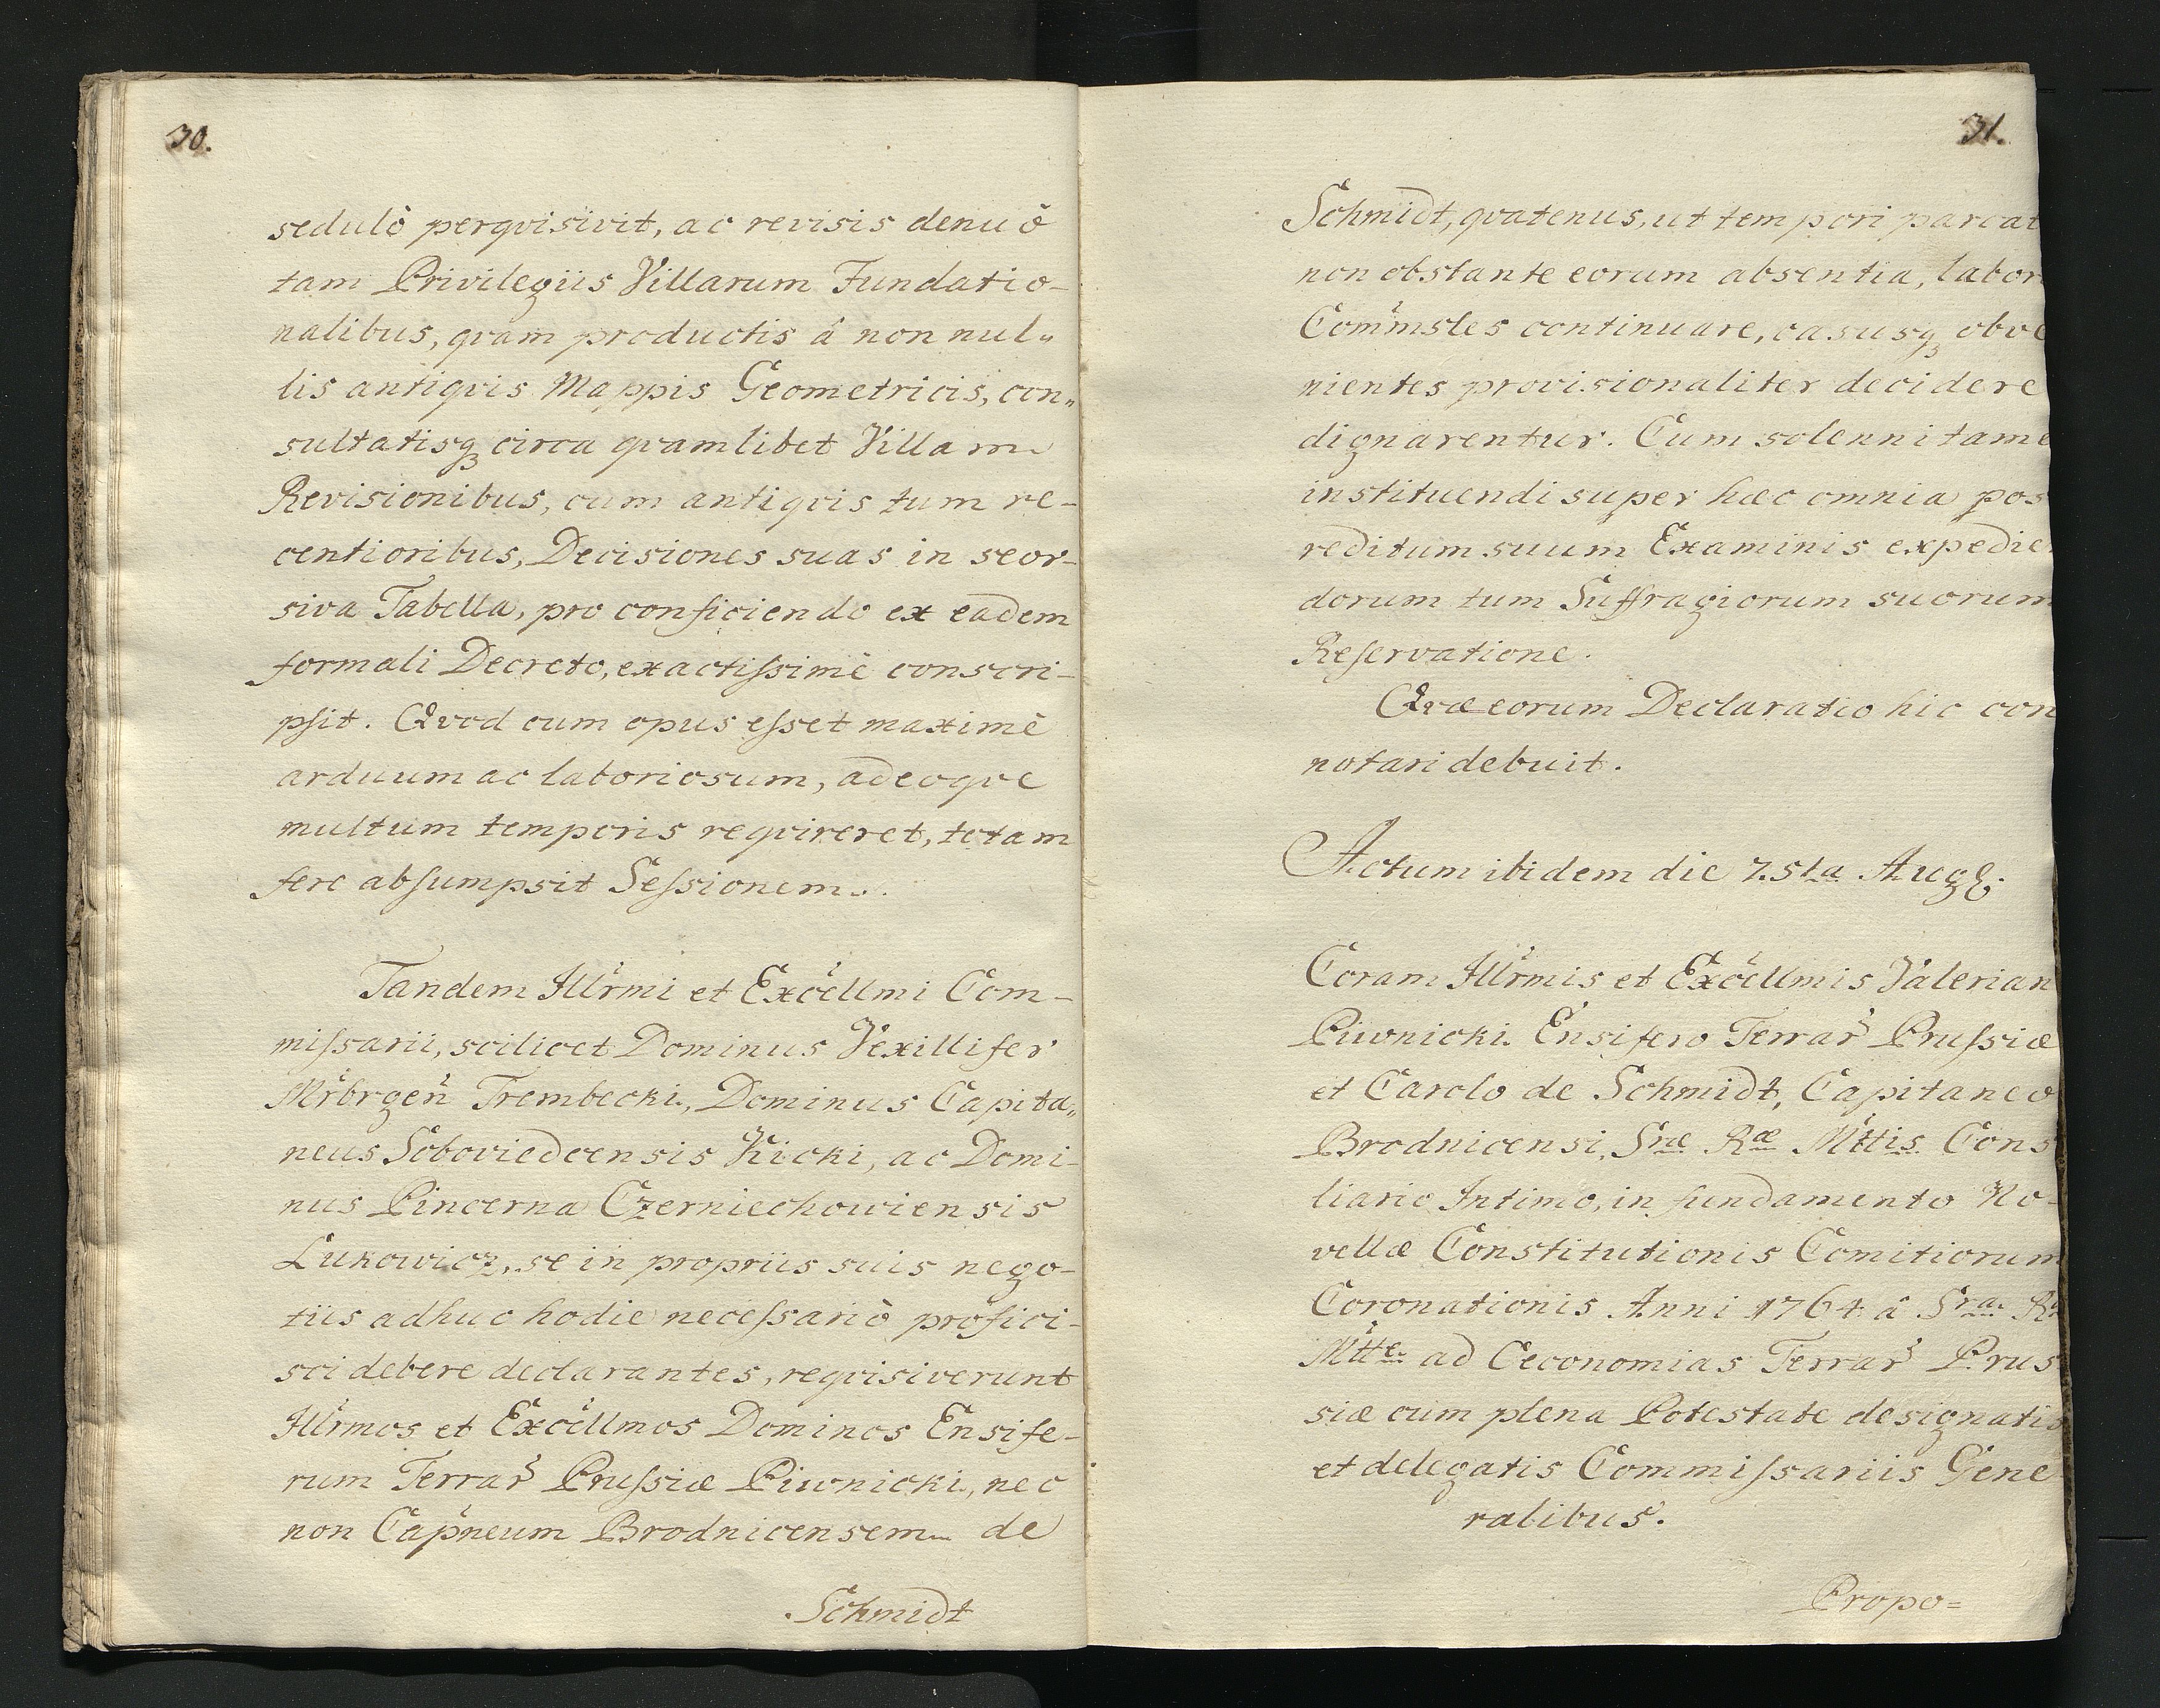 30.
sedulò perqvisivit, ac revisis denuô
tam Privilegiis Villarum Fundatio-
nalibus, qvam productis â non nul„
lis antiqvis Mappis Geometricis, con„
sultatisqꝫ circa qvamlibet Villam
Revisionibus, cum antiqvis tum re-
centioribus, Decisiones suas in seor-
siva Tabella, pro conficiendo ex eadem
formali Decreto, exactiſsimè conscri-
pſit. Qvod cum opus eſset maximè
arduum ac laboriosum, adeoqve
multum temporis reqvireret, totam
fere abſumpsit Seſsionem.
Tandem Illr̃mi et Excellm̃i Com-
miſsarii, scilicet Dominus Vexillifer
Mrbrgeñ Trembecki, Dominus Capita„
neus Soboviedcensis Kicki, ac Domi-
nus Pincerna Czerniechowiensis
Lukowicz, se in propriis suis nego-
tiis adhuc hodie neceſsariò profici-
sci debere declarantes, reqvisiverunt
Illr̃mos et Excellm̃os Dominos Ensife-
rum Terrar̃ Pruſsiæ Piwnicki, nec
non Capneum Brodnicensem de
Schmidt
31.
Schmidt, qvatenus, ut tempori parcat
non obstante eorum absentia, labor
Com̃msles continuare, casusqꝫ obve
nientes provisionaliter decidere
dignarentur. Cum solenni tame
instituendi super hæc omnia pos
reditum suum Examinis expedie
dorum tum Suffragiorum suorum
Reſervatione.
Qvæ eorum Declaratio hic con
notari debuit.
Actum ibidem die 7.sta Aug
Coram Illr̃mis et Excellm̃is Valerian
Piwnicki Ensifero Terrar̃ Pruſsiæ
et Carolo de Schmidt, Capitaneo
Brodnicensi, Sræ Ræ Mttis Cons
liario Intimo, in fundamento No-
vellæ Constitutionis Comitiorum
Coronationis Anni 1764 â Sra Ra
Mtte ad Oeconomias Terrar̃ Prus
siæ cum plena Potestate designatis
et delegatis Commiſsariis Gene
ralibus.
Propo=